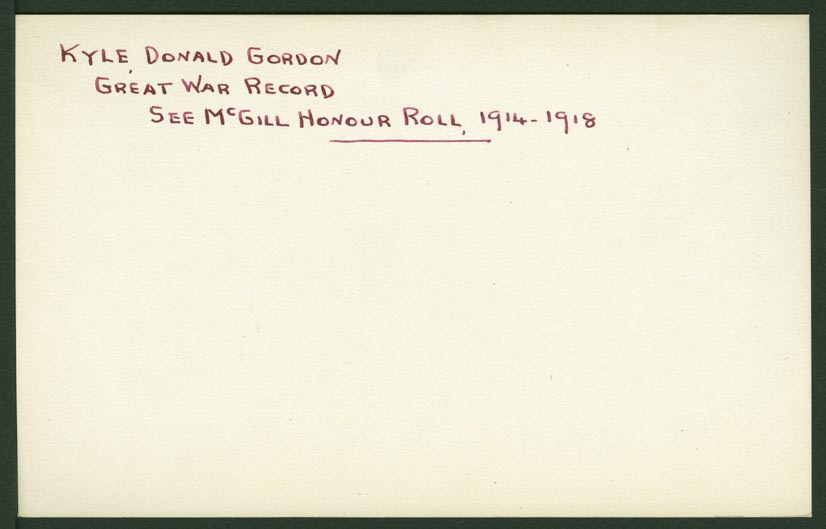 KYLE, DONALD GORDON
GREAT WAR RECORD
SEE McGILL HONOUR ROLL, 1914-1918